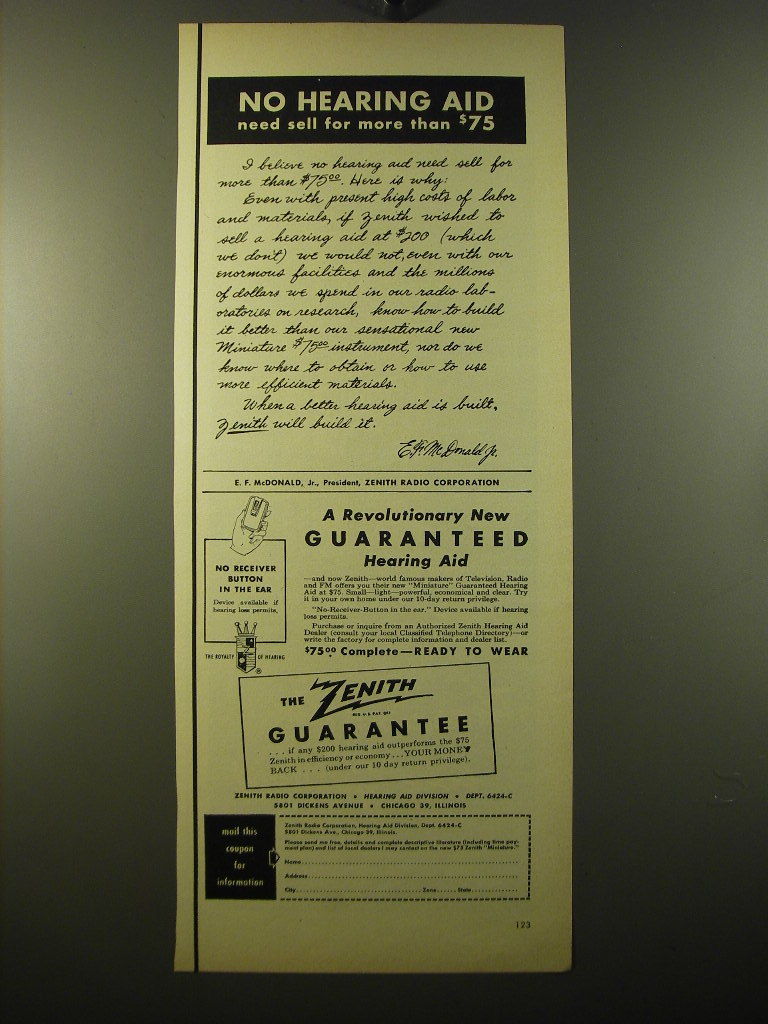 NO HEARING AID
need sell for more than $75
I believe no hearing aid need sell for
more than $75.00. Here is why:
Even with present high costs of labor
and materials, if Zenith wished to
sell a hearing aid at $200 (which
we don't) we would not, even with our
enormous facilities and the millions
of dollars we spend in our radio lab-
oratories on research, know how to build
it better than our sensational new
Miniature $75.00 instrument, nor do we
know where to obtain or how to use
more efficient materials.
When a better hearing aid is built,
Zenith will build it.
E.F. McDonald Jr.
E. F. McDONALD, Jr., President, ZENITH RADIO CORPORATION
NO RECEIVER
BUTTON
IN THE EAR
Device available if
hearing loss permits.
THE ROYALTY OF HEARING
®
A Revolutionary New
GUARANTEED
Hearing Aid
—and now Zenith—world famous makers of Television, Radio
and FM offers you their new "Miniature" Guaranteed Hearing
Aid at $75. Small—light—powerful, economical and clear. Try
it in your own home under our 10-day return privilege.
"No-Receiver-Button in the ear." Device available if hearing
loss permits.
Purchase or inquire from an Authorized Zenith Hearing Aid
Dealer (consult your local Classified Telephone Directory)—or
write the factory for complete information and dealer list.
$75.00 Complete—READY TO WEAR
THE ZENITH
REG. U.S. PAT. OFF.
GUARANTEE
. . . if any $200 hearing aid outperforms the $75
Zenith in efficiency or economy . . . YOUR MONEY
BACK . . . (under our 10 day return privilege).
ZENITH RADIO CORPORATION • HEARING AID DIVISION • DEPT. 6424-C
5801 DICKENS AVENUE • CHICAGO 39, ILLINOIS
mail this
coupon
for
information
Zenith Radio Corporation, Hearing Aid Division, Dept. 6424-C
5801 Dickens Ave., Chicago 39, Illinois.
Please send me free, details and complete descriptive literature (including time pay-
ment plan) and list of local dealers I may contact on the new $75 Zenith "Miniature."
Name
Address
City Zone State
123